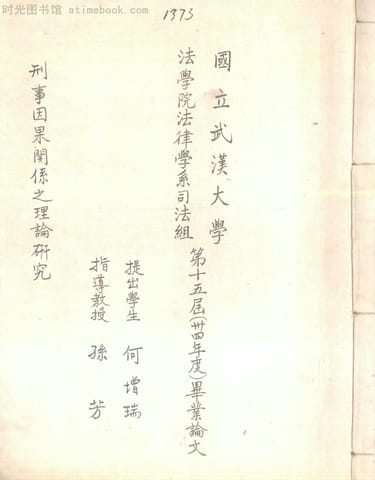 时光图书馆 atimebook.com
1373
國立武漢大學
法學院法律學系司法組
第十五屆(卅四年度)畢業論文
提出學生 何增瑞
指導教授 孫芳
刑事因果関係之理論研究